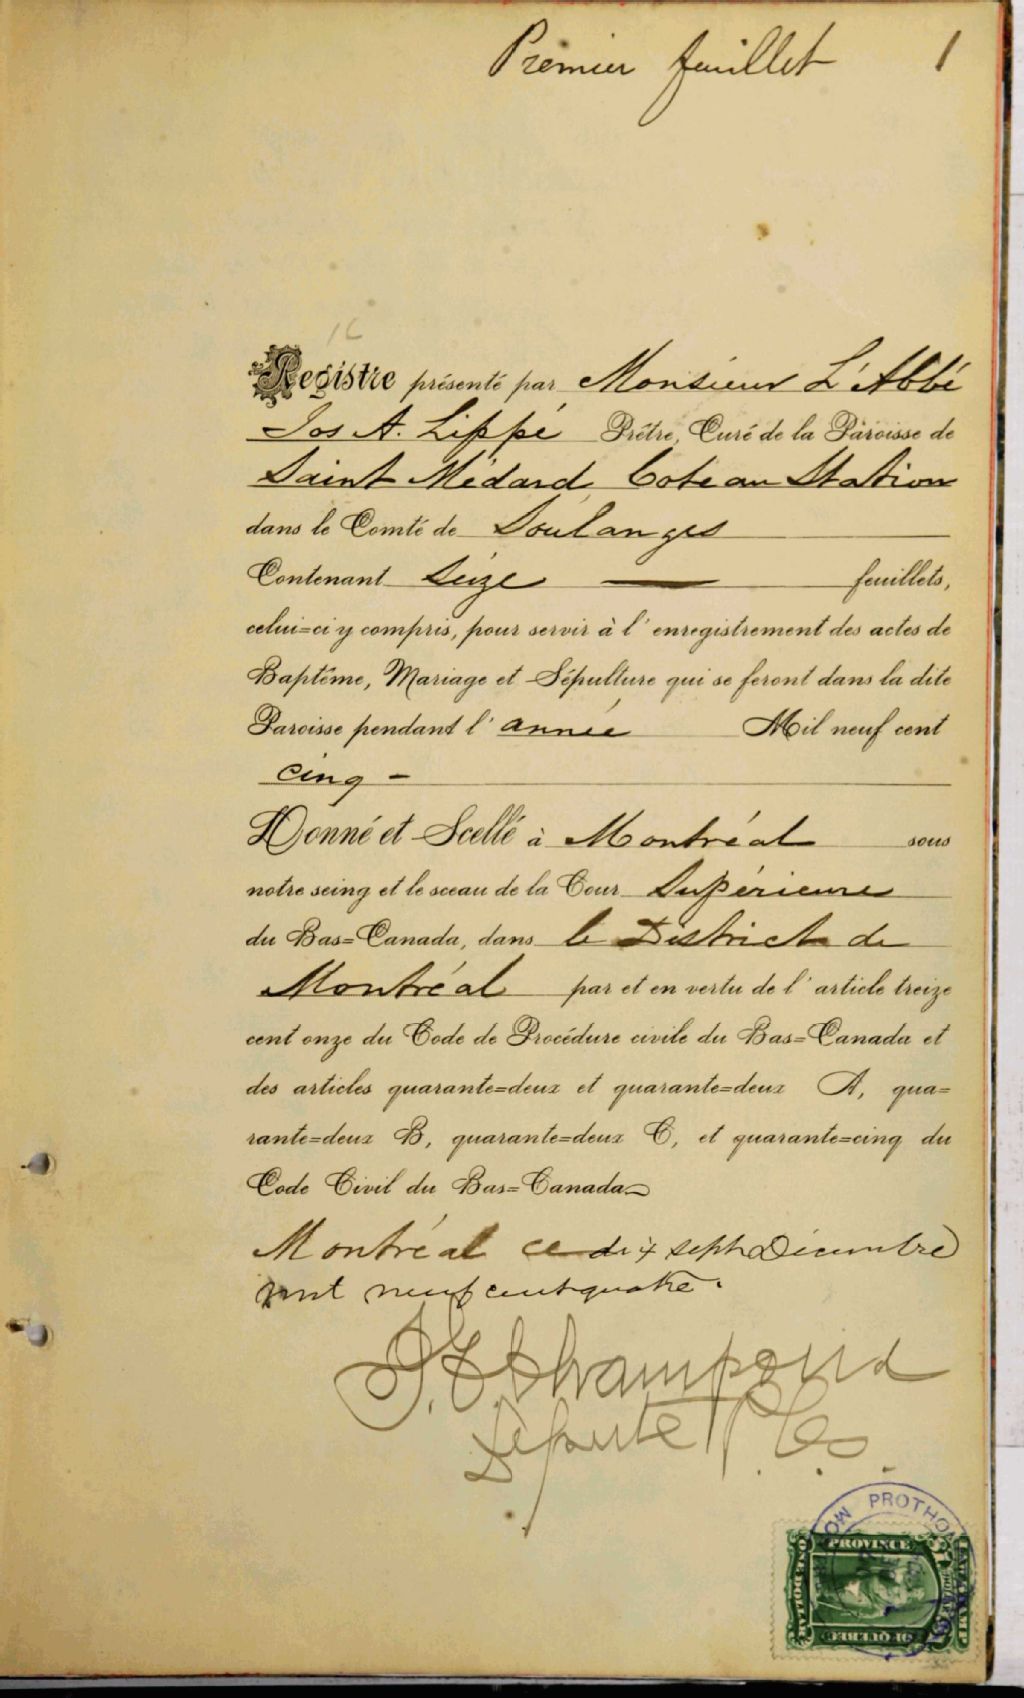 Premier feuillet 1
Registre présenté par Monsieur L'Abbé
Jos A. Lippé Prêtre, Curé de la Paroisse de
Saint Médard Coteau Station
dans le Comté de Soulanges
Contenant Seize feuillets,
celui=ci y compris, pour servir à l'enregistrement des actes de
Baptême, Mariage et Sépulture qui se feront dans la dite
Paroisse pendant l'année Mil neuf cent
cinq -
Donné et Scellé à Montréal sous
notre seing et le sceau de la Cour Supérieure
du Bas=Canada, dans le District de
Montréal par et en vertu de l'article treize
cent onze du Code de Procédure civile du Bas=Canada et
des articles quarante=deux et quarante=deux A, qua=
rante=deux B, quarante=deux C, et quarante=cinq du
Code Civil du Bas=Canada
Montréal ce dix sept Décembre
mil neuf cent quatre.
Champoux
Député P.C.S.
PROTHO
PROVINCE
OF QUEBEC
ONE DOLLAR